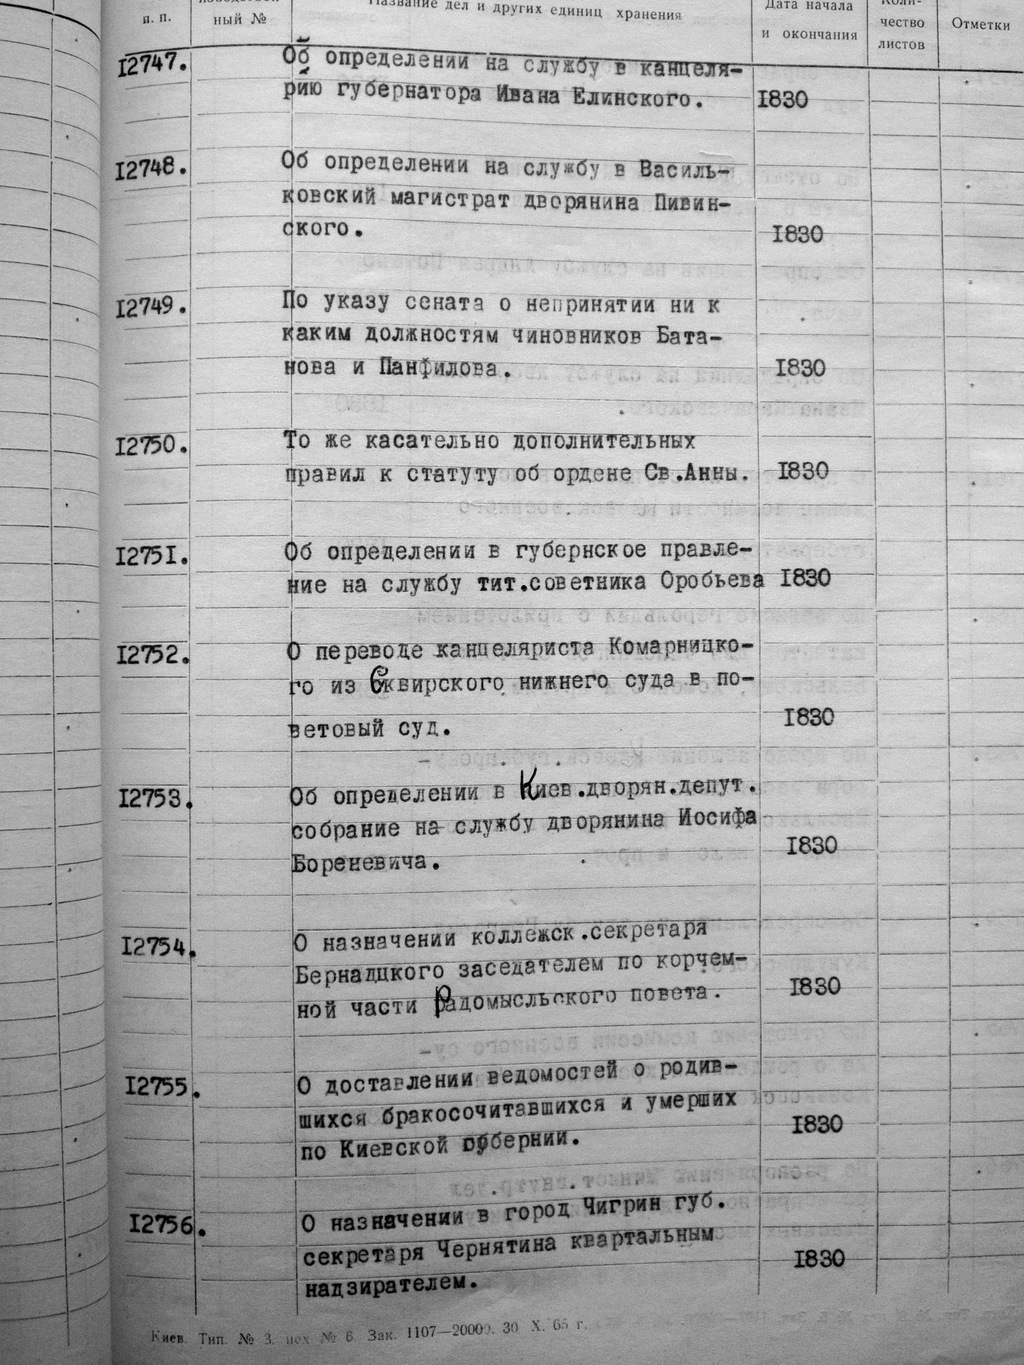 п. п.
ный №
Название дел и других единиц хранения
Дата начала
и окончания
Коли-
чество
листов
Отметки
12747.
Об определении на службу в канцеля-
рию губернатора Ивана Елинского.
1830
12748.
Об определении на службу в Василь-
ковский магистрат дворянина Пивин-
ского.
1830
12749.
По указу сената о непринятии ни к
каким должностям чиновников Бата-
нова и Панфилова.
1830
12750.
То же касательно дополнительных
правил к статуту об ордене Св.Анны.
1830
12751.
Об определении в губернское правле-
ние на службу тит.советника Оробьева
1830
12752.
О переводе канцеляриста Комарницко-
го из Сквирского нижнего суда в по-
ветовый суд.
1830
12753.
Об определении в Киев.дворян.депут.
собрание на службу дворянина Иосифа
Бореневича.
1830
12754.
О назначении коллежск.секретаря
Бернадцкого заседателем по корчем-
ной части Радомысльского повета.
1830
12755.
О доставлении ведомостей о родив-
шихся бракосочитавшихся и умерших
по Киевской губернии.
1830
12756.
О назначении в город Чигрин губ.
секретаря Чернятина квартальным
надзирателем.
1830
Киев. Тип. № 3. цех № 6 Зак. 1107—20000. 30 X. 65 г.